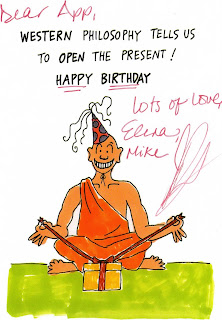 Dear App,
WESTERN PHILOSOPHY TELLS US
TO OPEN THE PRESENT!
HAPPY BIRTHDAY
lots of love,
Elena,
Mike